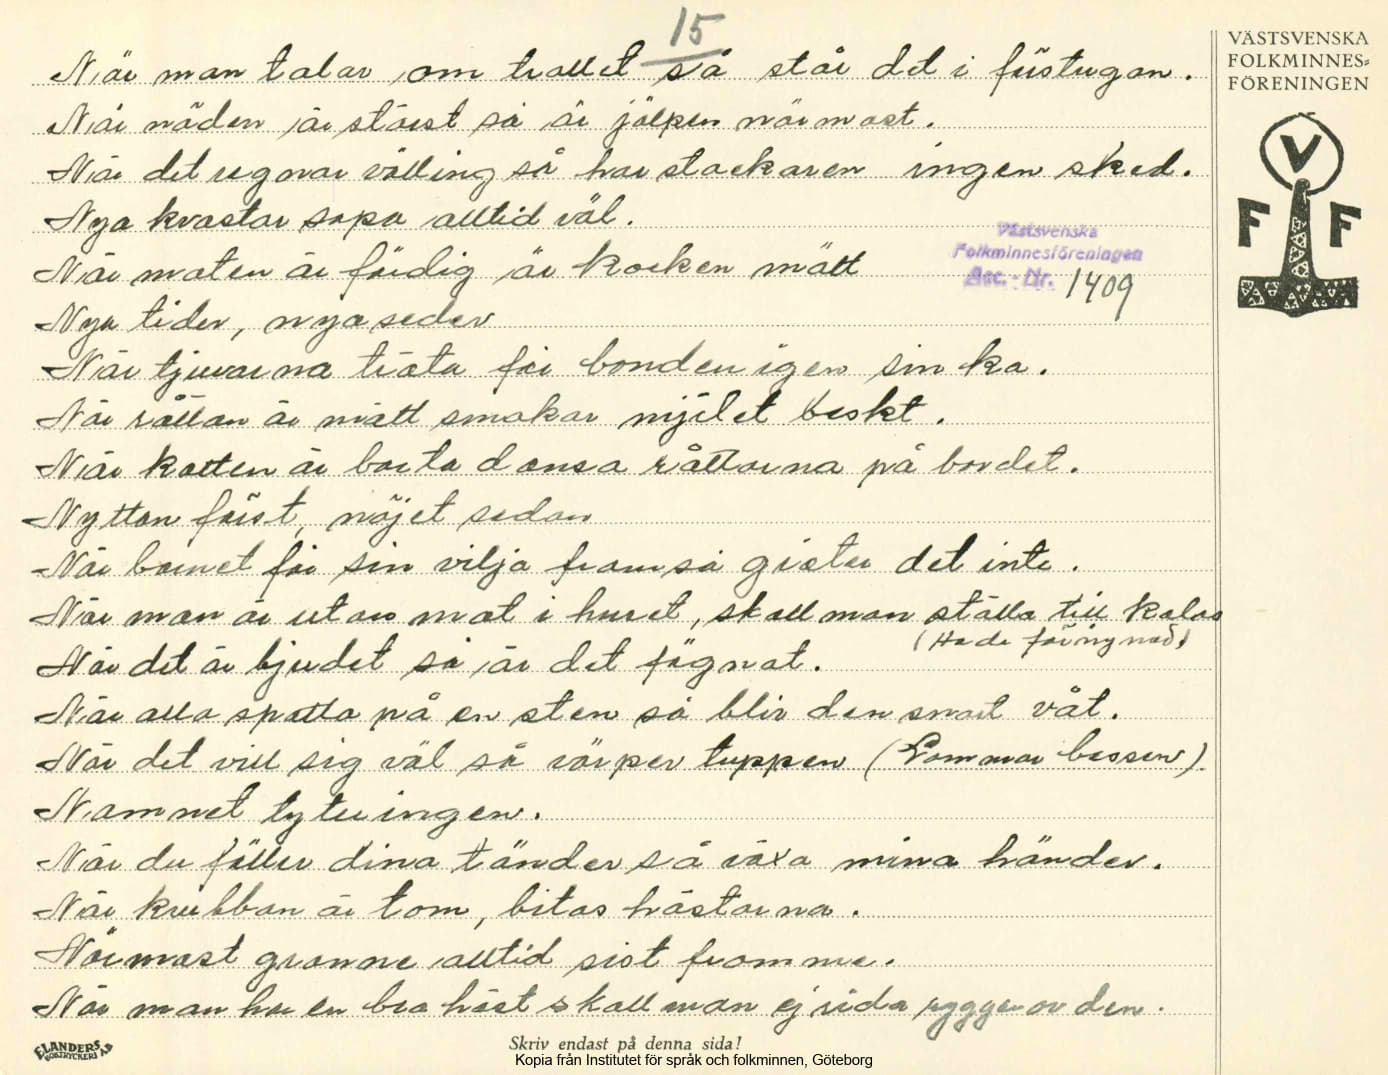 15
När man talar om trollet så står det i förstugan.
När nöden är störst så är jälpen närmast.
När det regnar välling så har stackaren ingen sked.
Nya kvastar sopa alltid väl.
När maten är färdig är kocken mätt
Nya tider, nya seder
När tjuvarna träta får bonden igen sin ko.
När råttan är mätt smakar mjölet beskt.
När katten är borta dansa råttorna på bordet.
Nyttan först, nöjet sedan
När barnet får sin vilja fram så gråter det inte.
När man är utan mat i huset, skall man ställa till kalas
(Hade föringnad)
När det är bjudet så är det fägnat.
När alla spotta på en sten så blir den snart våt.
När det vill sig väl så värper tuppen (Gommar bessen).
Namnet tyteringen.
När du fäller dina tänder så växa mina händer.
När krubban är tom, bitas hästarna.
Närmast granne alltid sist fromme.
När man har en bra häst skall man ej rida ryggen av den.
VÄSTSVENSKA
FOLKMINNES=
FÖRENINGEN
V
F F
Västsvenska
Folkminnesföreningen
Acc. - Nr. 1409
ELANDERS
BOKTRYCKERI A.B
Skriv endast på denna sida!
Kopia från Institutet för språk och folkminnen, Göteborg